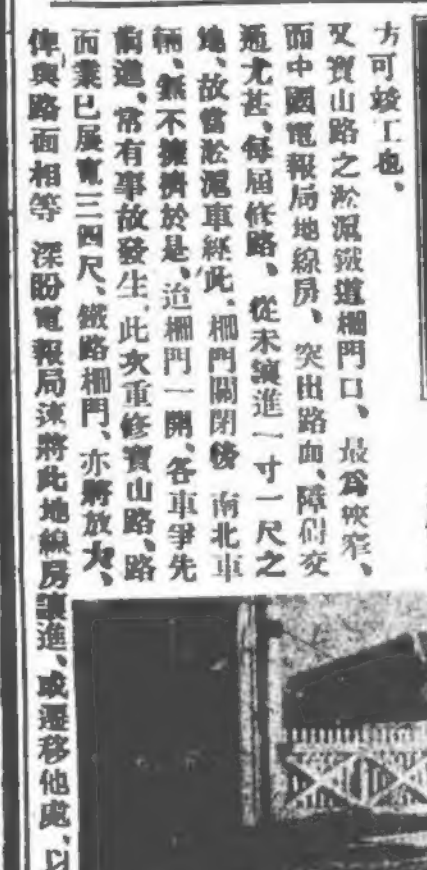 方可竣工也、
又寶山路之淞滬鐵道柵門口、最爲狹窄、
而中國電報局地線房、突出路面、障碍交
通尤甚、每屆修路、從未讓進一寸一尺之
地、故當淞滬車經此、柵門關閉後 南北車
輛、無不擁擠於是、迨柵門一開、各車爭先
前進、常有事故發生、此次重修寶山路、路
面業已展寬三四尺、鐵路柵門、亦將放大、
俾與路面相等 深盼電報局速將此地線房讓進、或遷移他處、以